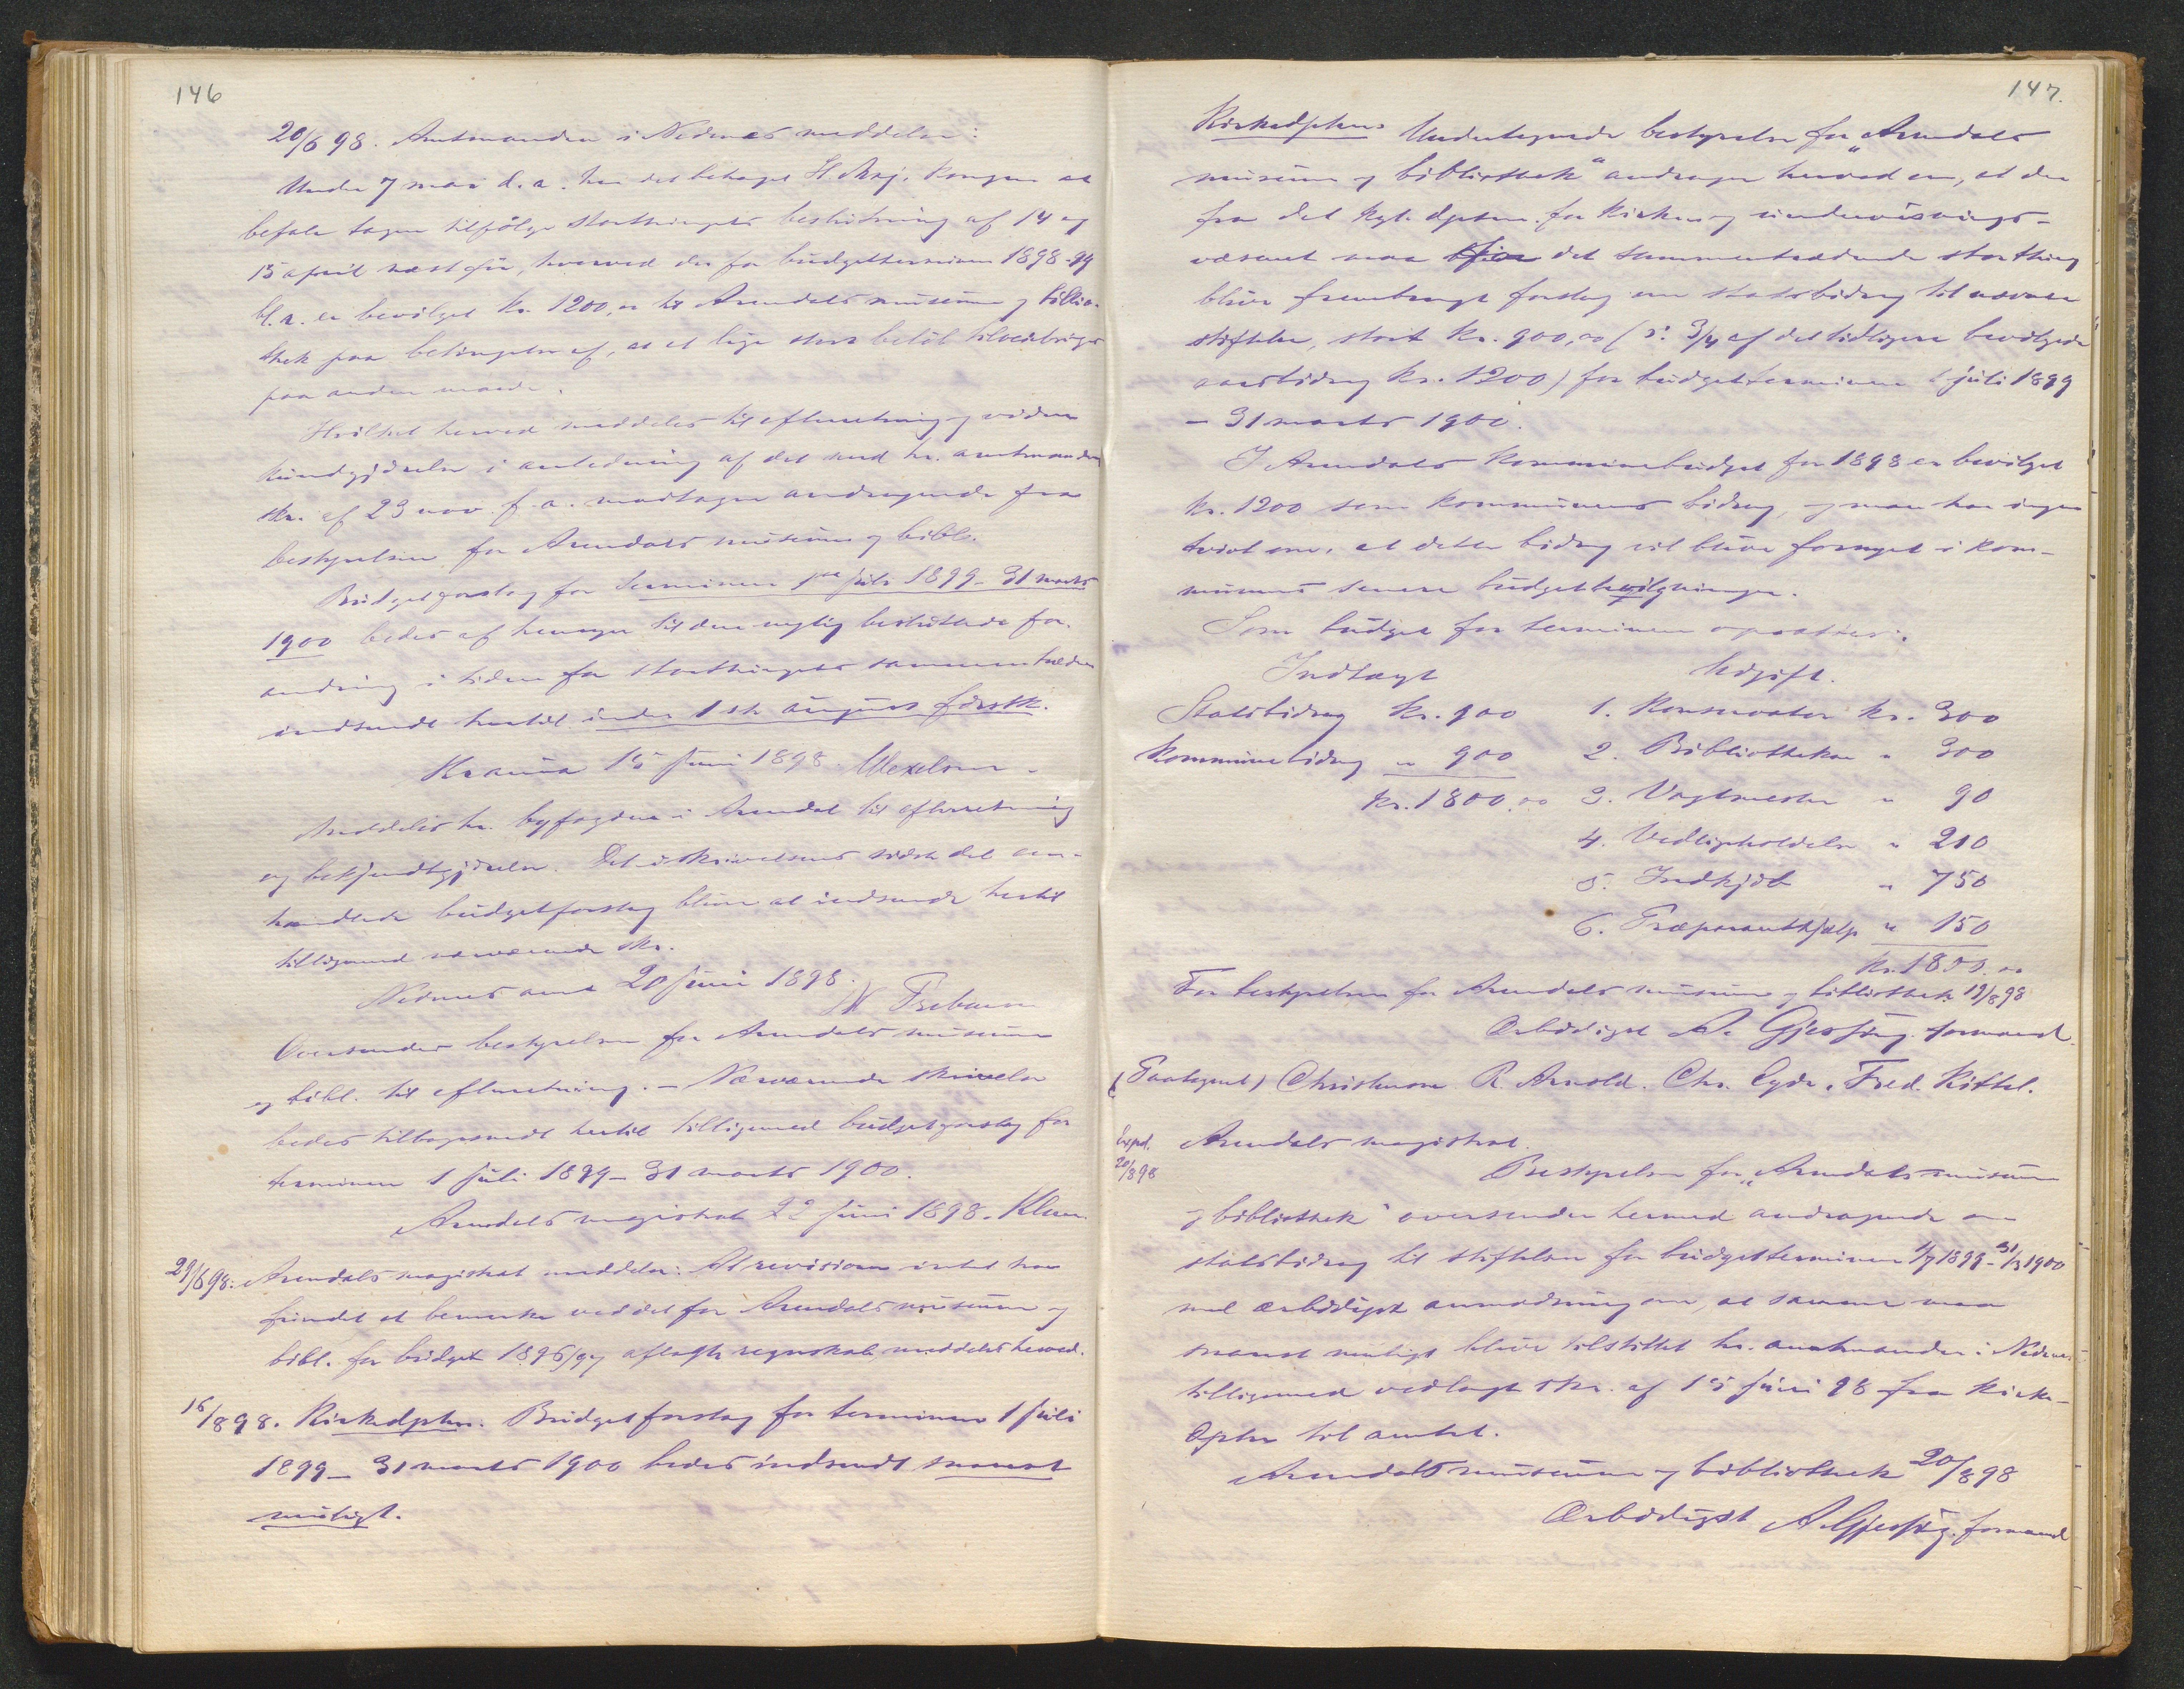 146
20/6 98. Amtmanden i Nedenæs meddeler:
Under 7 mai d.a. har det behaget H. Maj. Kongen at
befale tagen tilfölge storthingets beslutning af 14 og
15 april næstför, hvorved der for budgetterminen 1898-99
bl.a. er bevilget kr. 1200,00 til Arendals museum og biblio-
thek paa betingelse af, at et lige stort belöb tilveiebringes
paa anden maade.
Hvilket herved meddeles til efterretning og videre
kundgjörelse i anledning af det med hr. amtmandens
skr. af 23 nov. f.a. modtagne andragende fra
bestyrelsen for Arendals museum og bibl.
Budgetforslag for terminen 1ste juli 1899 - 31 marts
1900 bedes af hensyn til den nylig besluttede for-
andring i tiden for storthingets sammentræden
indsendt hertil inden 1ste august förstk.
Kr.ania 15 juni 1898. Wexelsen.
Meddeles hr. byfogden i Arendal til efterretning
og bekjendtgjörelse. Det i skrivelsens sidste del om-
handlede budgetforslag bliver at indsende hertil
tilligemed nærværende skr.
Nedenes amt 20 juni 1898.
N Prebens
Oversendes bestyrelsen for Arendals museum
og bibl. til efterretning. - Nærværende skrivelse
bedes tilbagesendt hertil tilligemed budgetforslag for
terminen 1 juli 1899 - 31 marts 1900.
Arendals magistrat 22 juni 1898. Klem
29/6 98. Arendals magistrat meddeler: At revisionen intet har
fundet at bemerke ved det for Arendals museum og
bibl. for budget 1896/97 aflagte regnskab meddeles herved.
16/8 98. Kirkedptm. Budgetforslag for terminen 1 juli
1899 - 31 marts 1900 bedes indsendt snarest
muligt.
147.
Kirkedptem. Undertegnede bestyrelse for „Arendals
museum og bibliothek“ andrager herved om, at der
fra det kgl. dptem. for kirke og undervisnings-
væsenet maa for det sammentrædende storthing
blive frembragt forslag om statsbidrag til nævnte
stiftelse, stort kr. 900,00 (ɔ: 3/4 af det tidligere bevilgede
aarsbidrag kr. 1200) for budgetterminen 1 juli 1899
- 31 marts 1900.
I Arendals kommunebudget for 1898 er bevilget
kr. 1200 som kommunens bidrag, og man har ingen
tvivl om, at dette bidrag vil blive fornyet i kom-
munens senere budgetbevilgninger.
Som budget for terminen opsættes:
Indtægt Udgift.
Statsbidrag kr. 900 1. Konservator kr. 300
Kommunebidrag " 900 2. Bibliothekar " 300
kr. 1800.00 3. Vagtmester " 90
4. Vedligeholdelse " 210
5. Indkjöb " 750
6. Præparanthjælp " 150
kr. 1800.00
For bestyrelsen for Arendals museum og bibliothek 19/8 98
Ærbödigst A. Gjessing. formand.
(Paategnet) Christensen R. Arnold. Chr. Eyde. Fred. Kittel.
Exped. 20/8 98
Arendals magistrat.
Bestyrelsen for „Arendals museum
og bibliothek“ oversender hermed andragende om
statsbidrag til stiftelsen for budgetterminen 1/7 1899 - 31/3 1900
med ærbödigst anmodning om, at samme maa
snarest muligt blive tilstillet hr. amtmanden i Nedenes
tilligemed vedlagte skr. af 15 juni 98 fra kirke-
dptm til amtet.
Arendals museum og bibliothek 20/8 98
Ærbödigst A. Gjessing. formand